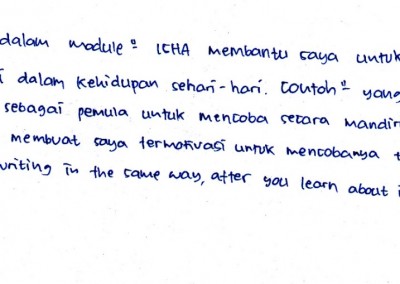 dalam module² ICHA membantu saya untuk
i dalam kehidupan sehari-hari. Contoh² yang
sebagai pemula untuk mencoba secara mandir
membuat saya termotivasi untuk mencobanya t
writing in the same way, after you learn about i